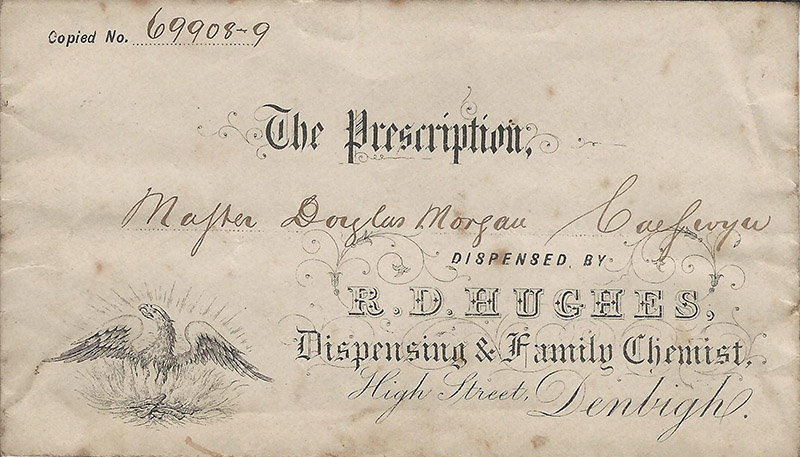 Copied No. 69908-9
The Prescription,
Master Douglas Morgan
DISPENSED BY
R. D. HUGHES,
Dispensing & Family Chemist,
High Street, Denbigh.